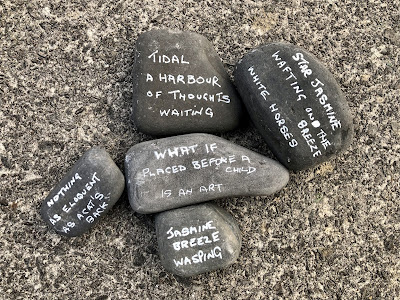 TIDAL
A HARBOUR
OF THOUGHTS
WAITING
STAR JASMINE
WAFTING ON THE
BREEZE
WHITE HORSES
WHAT IF
PLACED BEFORE A
CHILD
IS AN ART
NOTHING
AS ELOQUENT
AS A CAT'S
BACK
JASMINE
BREEZE
WASPING